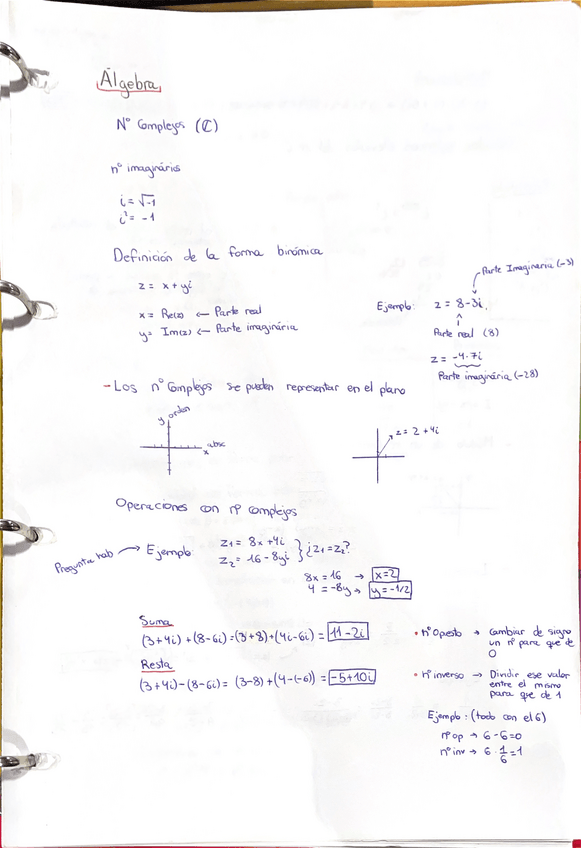 Álgebra
Nº Complejos (ℂ)
nº imaginários
i = √-1
i² = -1
Definición de la forma binómica
z = x + yi
x = Re(z) ← Parte real
y = Im(z) ← Parte imaginária
Parte Imaginaria (-3)
Ejemplo: z = 8 - 3i
Parte real (8)
z = -4·7i
Parte imaginária (-28)
- Los nº Complejos se pueden representar en el plano
y orden
absc
x
z = 2 + 4i
Operaciones con nº complejos
Pregunta → Ejemplo: z₁ = 8x + 4i
z₂ = 16 - 8yi } ¿z₁ = z₂?
8x = 16 → x = 2
4 = -8y → y = -1/2
Suma
(3+4i) + (8-6i) = (3+8) + (4i-6i) = 11-2i
Resta
(3+4i) - (8-6i) = (3-8) + (4-(-6)) = -5+10i
• nº Opesto → Cambiar de signo
un nº para que de
0
• nº inverso → Dividir ese valor
entre el mismo
para que de 1
Ejemplo: (todo con el 6)
nº op → 6 - 6 = 0
nº inv → 6 · 1/6 = 1